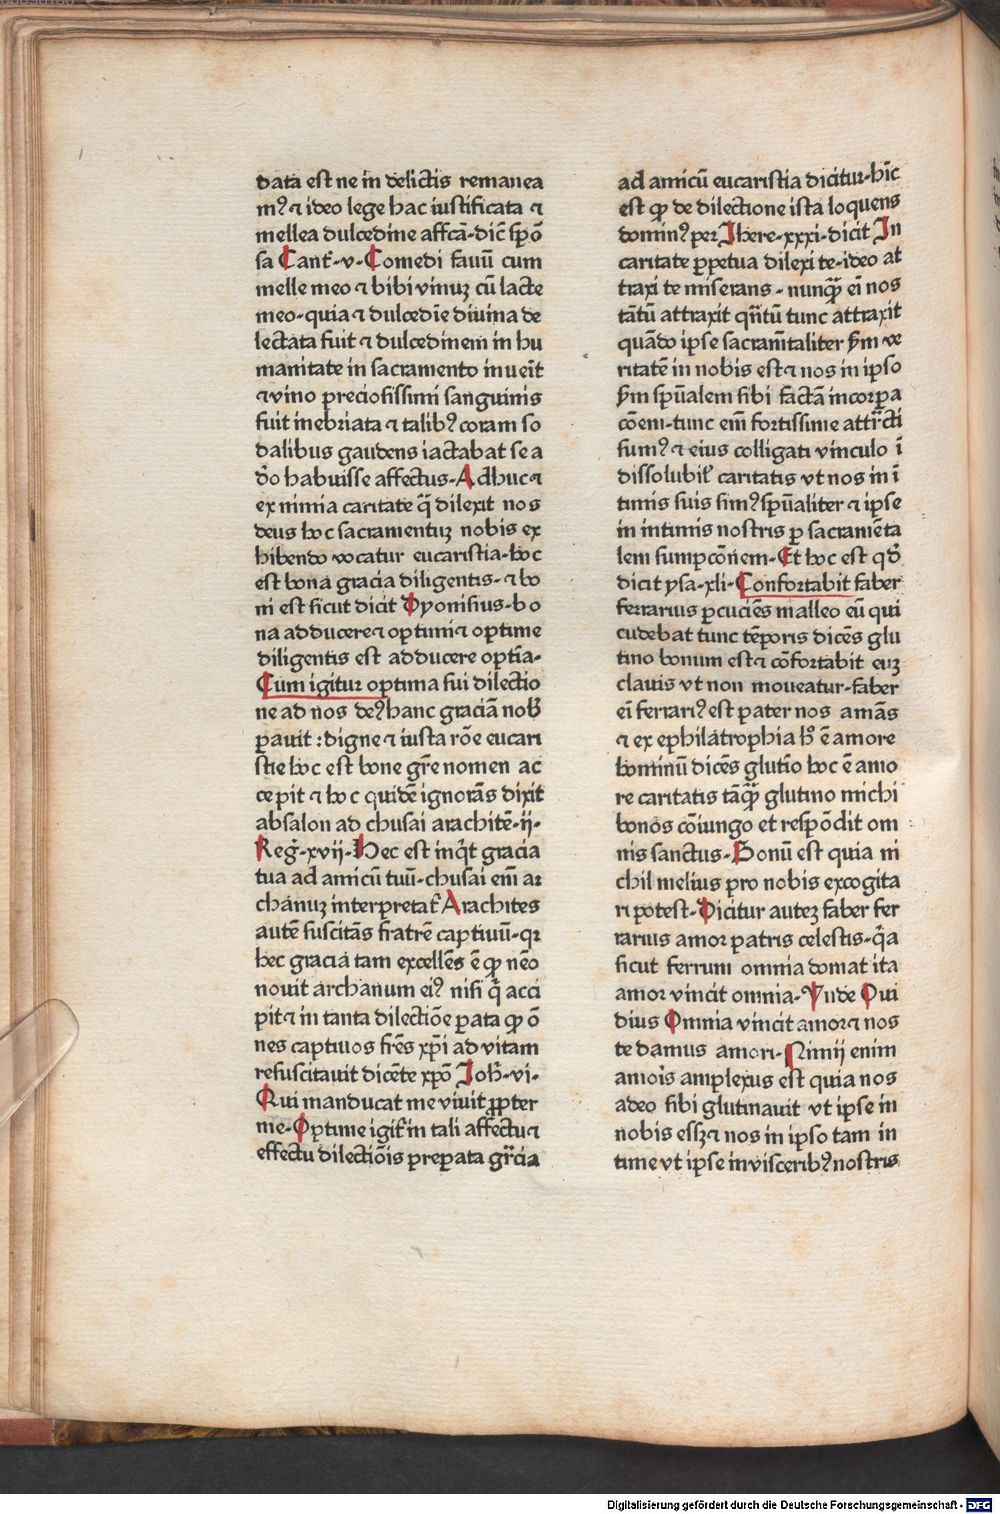 data est ne in delictis remanea
mꝰ ⁊ ideo lege hac iustificata ⁊
mellea dulcedine affcā-dic̄ spō
sa Cant̄-v-Comedi fauū cum
melle meo ⁊ bibi vinuꝫ cū lacte
meo-quia ⁊ dulcedīe diuina de
lectata fuit ⁊ dulcedinem in hu
manitate in sacramento inueīt
⁊ vino preciosissimi sanguinis
fuit inebriata ⁊ talibꝰ coram so
dalibus gaudens iactabat se a
dō habuisse affectus-Adhuc ⁊
ex nimia caritate q̄ dilexit nos
deus hoc sacramentuꝫ nobis ex
hibendo vocatur eucaristia-hoc
est bona gracia diligentis-⁊ bo
ni est sicut dicit Dyonisius-bo
na adducere ⁊ optimi ⁊ optime
diligentis est adducere optīa-
Cum igitur optima sui dilectio
ne ad nos deꝰ hanc graciā nob̄
ꝑauit : digne ⁊ iusta rōe eucari
stie hoc est bone gr̄e nomen ac
cepit ⁊ hoc quidē ignorās dixit
absalon ad chusai arachitē-ii-
Reḡ-xvij-Hec est inq̄t gracia
tua ad amicū tuū-chusai em̄ ar
chanuꝫ interpretat̄ Arachites
autē suscitās fratrē captiuū-qꝛ
hec gracia tam excellēs ē ꝙ nēo
nouit archanum eiꝰ nisi q̄ acci
pit ⁊ in tanta dilectiōe ꝑata ꝙ ō
nes captiuos fr̄es xp̄i ad vitam
resuscitauit dicēte xpō Joh̄-vi-
Qui manducat me viuit ꝓpter
me-Optime igit̄ in tali affectu ⁊
effectu dilectiōis preꝑata gr̄cia
ad amicū eucaristia dicitur-hīc
est ꝙ de dilectione ista loquens
dominꝰ per Jhere-xxxi-dicit In
caritate ꝑpetua dilexi te-ideo at
traxi te miserans-nunq̄ꝫ eī nos
tātū attraxit qn̄tū tunc attraxit
quādo ipse sacram̄taliter ẜm ve
ritatē in nobis est ⁊ nos in ipso
ẜm spūalem sibi factā incorꝑa
cōem-tunc em̄ fortissime attr̄cti
sumꝰ ⁊ eius colligati vinculo ī
dissolubil̄ caritatis vt nos in ī
timis suis simꝰ spūaliter ⁊ ipse
in intimis nostris ꝑ sacramēta
lem sumpcōnem-Et hoc est qd̄
dicit ysa-xli-Confortabit faber
ferrarius ꝑcuciēs malleo eū qui
cudebat tunc tēporis dicēs glu
tino bonum est ⁊ cōfortabit euꝫ
clauis vt non moueatur-faber
eī ferrariꝰ est pater nos amās
⁊ ex ephilātrophia h̄ ē amore
hominū dicēs glutīo hoc ē amo
re caritatis tāq̄ꝫ glutino michi
honos cōiungo et respōdit om
nis sanctus-Bonū est quia ni
chil melius pro nobis excogita
ri potest-Dicitur auteꝫ faber fer
rarius amor patris celestis-q̄a
sicut ferrum omnia domat ita
amor vincit omnia-Vnde Oui
dius Omnia vincit amor ⁊ nos
te damus amori-Nimij enim
amoīs amplexus est quia nos
adeo sibi glutinauit vt ipse in
nobis essꝫ ⁊ nos in ipso tam in
time vt ipse in visceribꝰ nostris
Digitalisierung gefördert durch die Deutsche Forschungsgemeinschaft - DFG